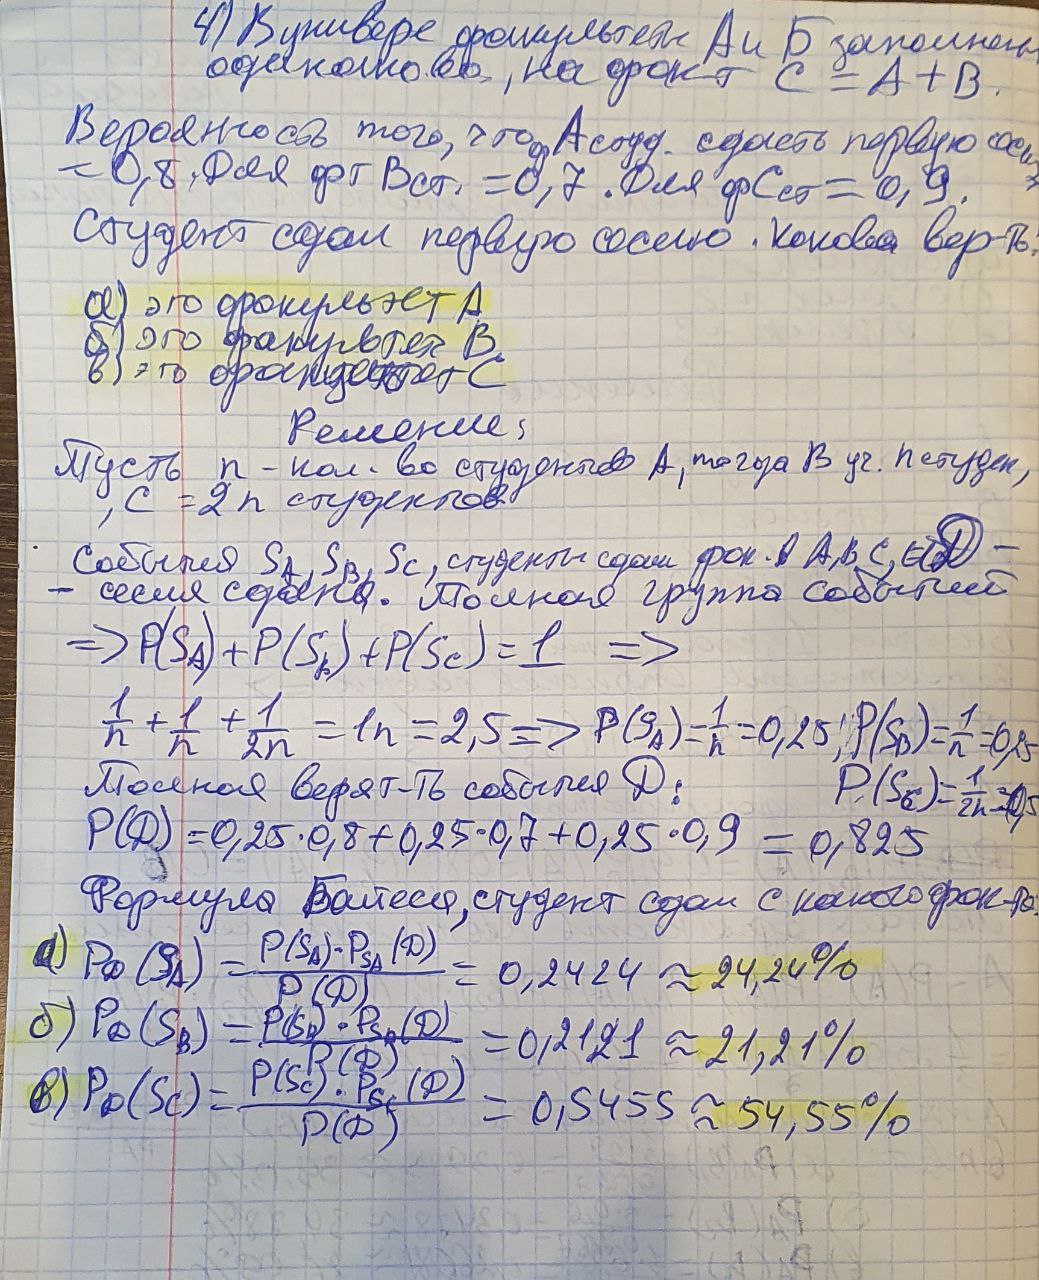 4) В универе факультеты А и Б заполнены
одинаково, на факт С = А + В.
Вероятность того, что А студ. сдасть первую сесию
= 0,8, Для фт В ст. = 0,7. Для ф С ст = 0,9.
Студент сдал первую сесию. Какова вер-ть:
а) это факультет А
б) это факультет В.
в) это факультет С
Решение:
Пусть n - кол-во студентов А, тогда В уч. n студен,
, С = 2n студентов
События S_A, S_B, S_C, студенты сдали фак. в А, В, С, Д -
- сесия сдана. Полная группа событий
=> P(S_A) + P(S_B) + P(S_C) = 1 =>
1/n + 1/n + 1/2n = 1n = 2,5 => P(S_A) = 1/n = 0,25; P(S_B) = 1/n = 0,25
Полная верят-ть события Д: P(S_C) = 1/2n = 0,5
P(Д) = 0,25 · 0,8 + 0,25 · 0,7 + 0,25 · 0,9 = 0,825
Формула Байеса, студент сдал с какого фак-та:
а) P_Д(S_A) = P(S_A) · P_{S_A}(Д) / P(Д) = 0,2424 ≈ 24,24%
б) P_Д(S_B) = P(S_B) · P_{S_B}(Д) / P(Д) = 0,2121 ≈ 21,21%
в) P_Д(S_C) = P(S_C) · P_{S_C}(Д) / P(Д) = 0,5455 ≈ 54,55%